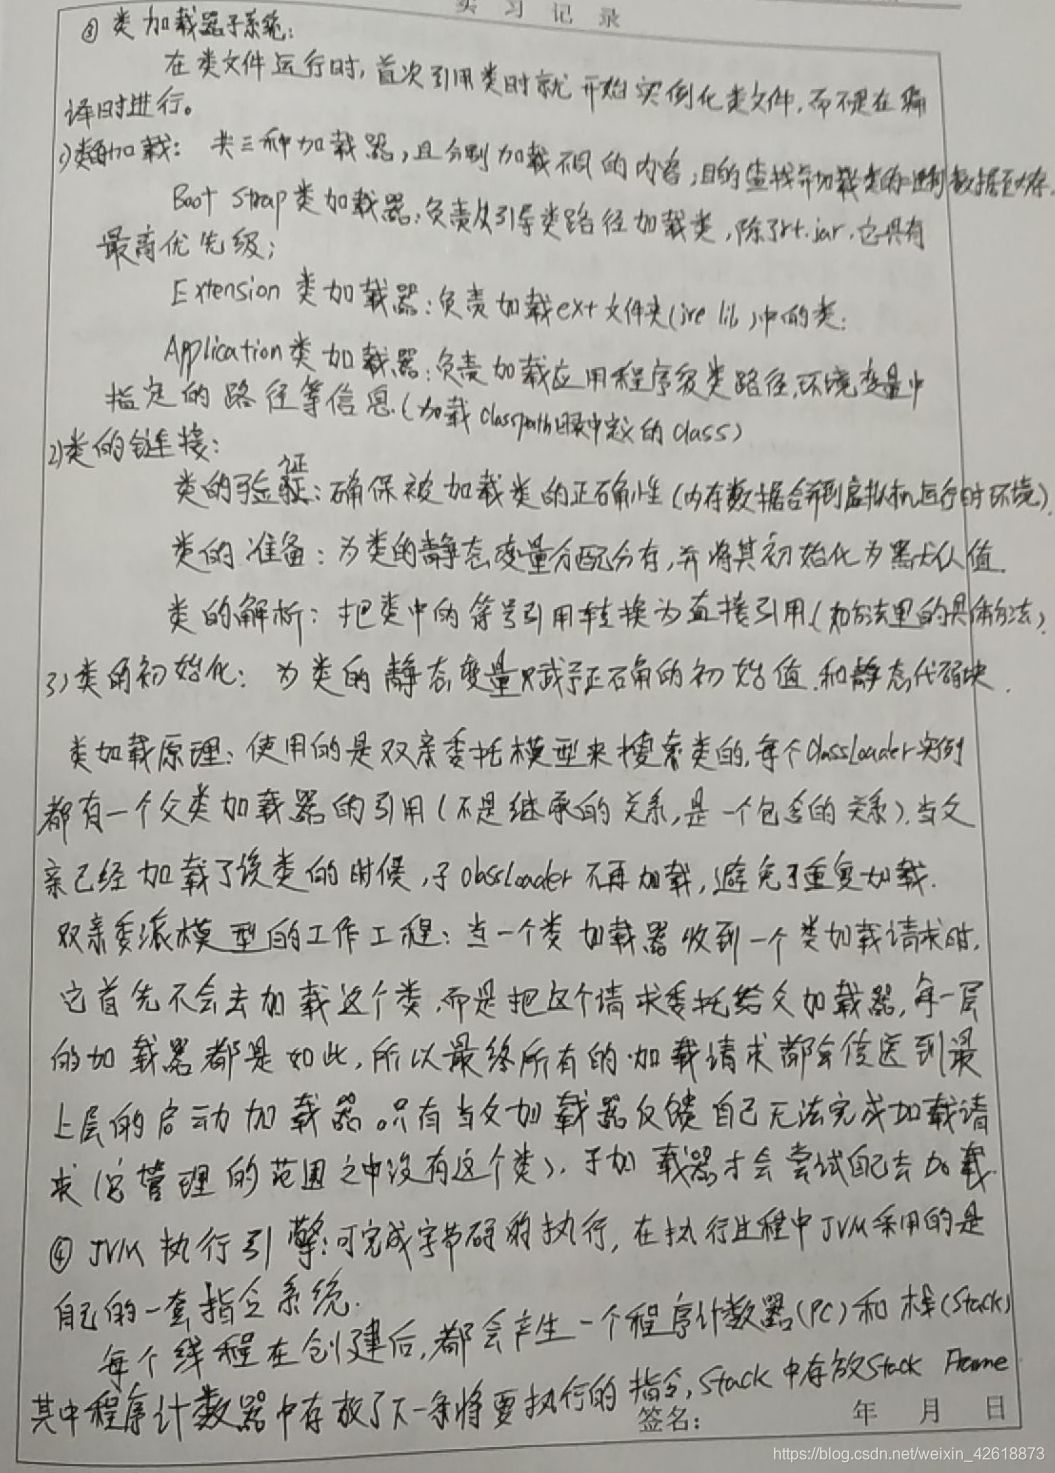 实习记录
③ 类加载器子系统:
在类文件运行时,首次引用类时就开始实例化类文件,而不是在编
译时进行。
1)类的加载: 共三种加载器,且分别加载不同的内容,目的查找并加载类的二进制数据至内存.
Boot Strap类加载器:负责从引导类路径加载类,除了rt.jar.它具有
最高优先级;
Extension 类加载器:负责加载ext文件夹(jre lib)中的类;
Application类加载器:负责加载应用程序级类路径,环境变量中
指定的路径等信息(加载classpath目录中定义的class)
2)类的链接:
类的验证:确保被加载类的正确性(内存数据合并到虚拟机运行时环境).
类的准备:为类的静态变量分配分存,并将其初始化为默认值.
类的解析:把类中的符号引用转换为直接引用(如方法里的具体方法).
3)类的初始化: 为类的静态变量赋予正确的初始值.和静态代码块.
类加载原理:使用的是双亲委托模型来搜索类的,每个ClassLoader实例
都有一个父类加载器的引用(不是继承的关系,是一个包含的关系).当父
亲已经加载了该类的时候,子ClassLoader不再加载,避免了重复加载.
双亲委派模型的工作工程:当一个类加载器收到一个类加载请求时,
它首先不会去加载这个类,而是把这个请求委托给父加载器,每一层
的加载器都是如此,所以最终所有的加载请求都会传送到最
上层的启动加载器。只有当父加载器反馈自己无法完成加载请
求(它管理的范围之中没有这个类),子加载器才会尝试自己去加载.
④ JVM执行引擎:可完成字节码的执行,在执行过程中JVM采用的是
自己的一套指令系统.
每个线程在创建后,都会产生一个程序计数器(PC)和栈(Stack)
其中程序计数器中存放了下一条将要执行的指令,Stack中存放Stack Frame
签名: 年 月 日
https://blog.csdn.net/weixin_42618873